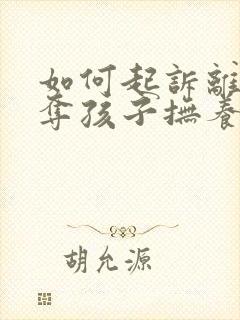 如何起訴離
奪孩子撫養
胡允源